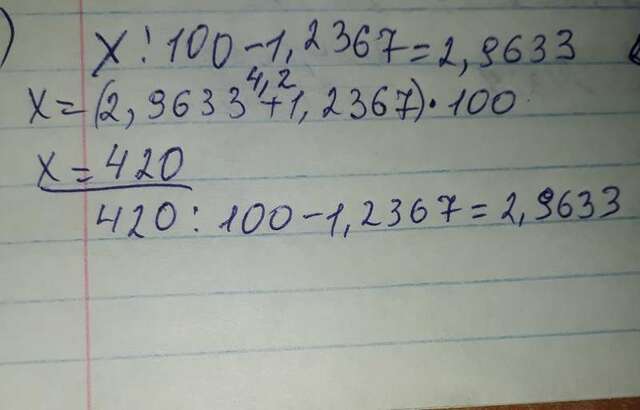 ) x : 100 - 1,2367 = 2,9633
4,2
x = (2,9633 + 1,2367) · 100
x = 420
420 : 100 - 1,2367 = 2,9633